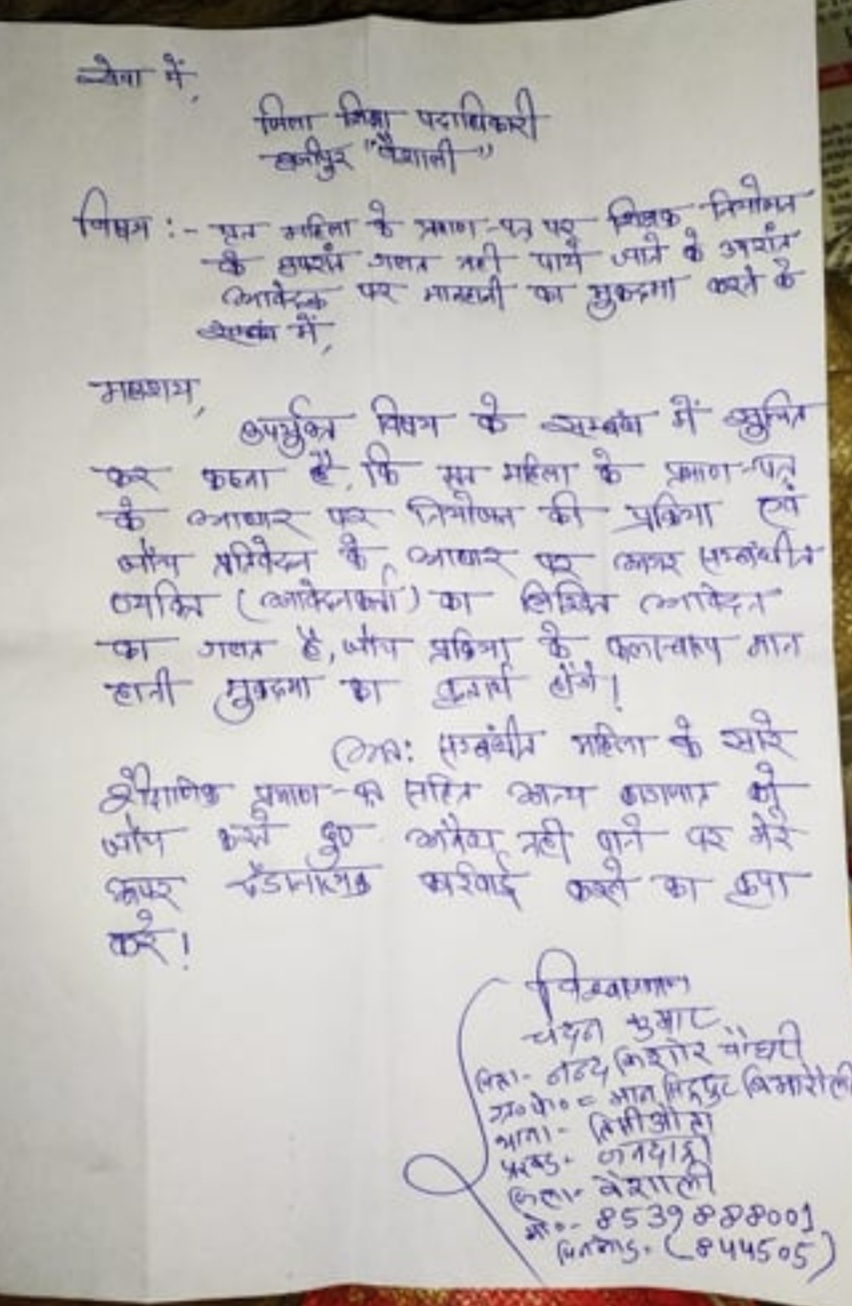 सेवा में,
जिला शिक्षा पदाधिकारी
हाजीपुर "वैशाली"
विषय :- मृत महिला के प्रमाण-पत्र पर शिक्षक नियोजन
के उपरांत गलत नही पाये जाने के उपरांत
आवेदक पर मानहानी का मुकदमा करने के
सम्बंध में,
महाशय,
उपर्युक्त विषय के सम्बंध में सुचित
कर कहना है, कि मृत महिला के प्रमाण-पत्र
के आधार पर नियोजन की प्रक्रिया एवं
जाँच प्रतिवेदन के आधार पर अगर सम्बंधीत
व्यक्ति (आवेदनकर्ता) का लिखित आवेदन
का गलत है, जाँच प्रक्रिया के फलस्वरूप मान
हानी मुकदमा का होंगे!
अत: सम्बंधीत महिला के सारे
शैक्षणिक प्रमाण-पत्र सहित अन्य कागजात को
जाँच करते हुए अवैध नही पाने पर मेरे
ऊपर दंडात्मक कार्रवाई करने का कृपा
करे!
विश्वासभाजन
चंदन कुमार
पिता- नन्द किशोर चौधरी
ग्रा०पो० = मानसिंहपुर बिझरौली
थाना-
प्रखंड- जन्दाहा
जिला- वैशाली
मो०- 8539888001
पिनकोड- (844505)